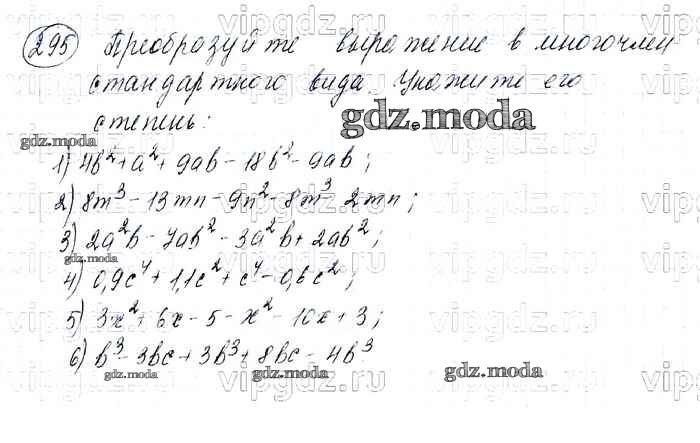 295 Преобразуйте выражение в многочлен
стандартного вида. Укажите его
степень:
gdz.moda
gdz.moda
1) 4b² + a² + 9ab – 18b² – 9ab;
2) 8m³ – 13mn – 9n² – 8m³ 2mn;
3) 2a²b – 7ab² – 3a²b + 2ab²;
gdz.moda
4) 0,9c⁴ + 1,1c² + c⁴ – 0,6c²;
5) 3x² + 6x – 5 – x² – 10x + 3;
6) b³ – 3bc + 3b³ + 8bc – 4b³
gdz.moda gdz.moda gdz.moda
vipgdz.ru